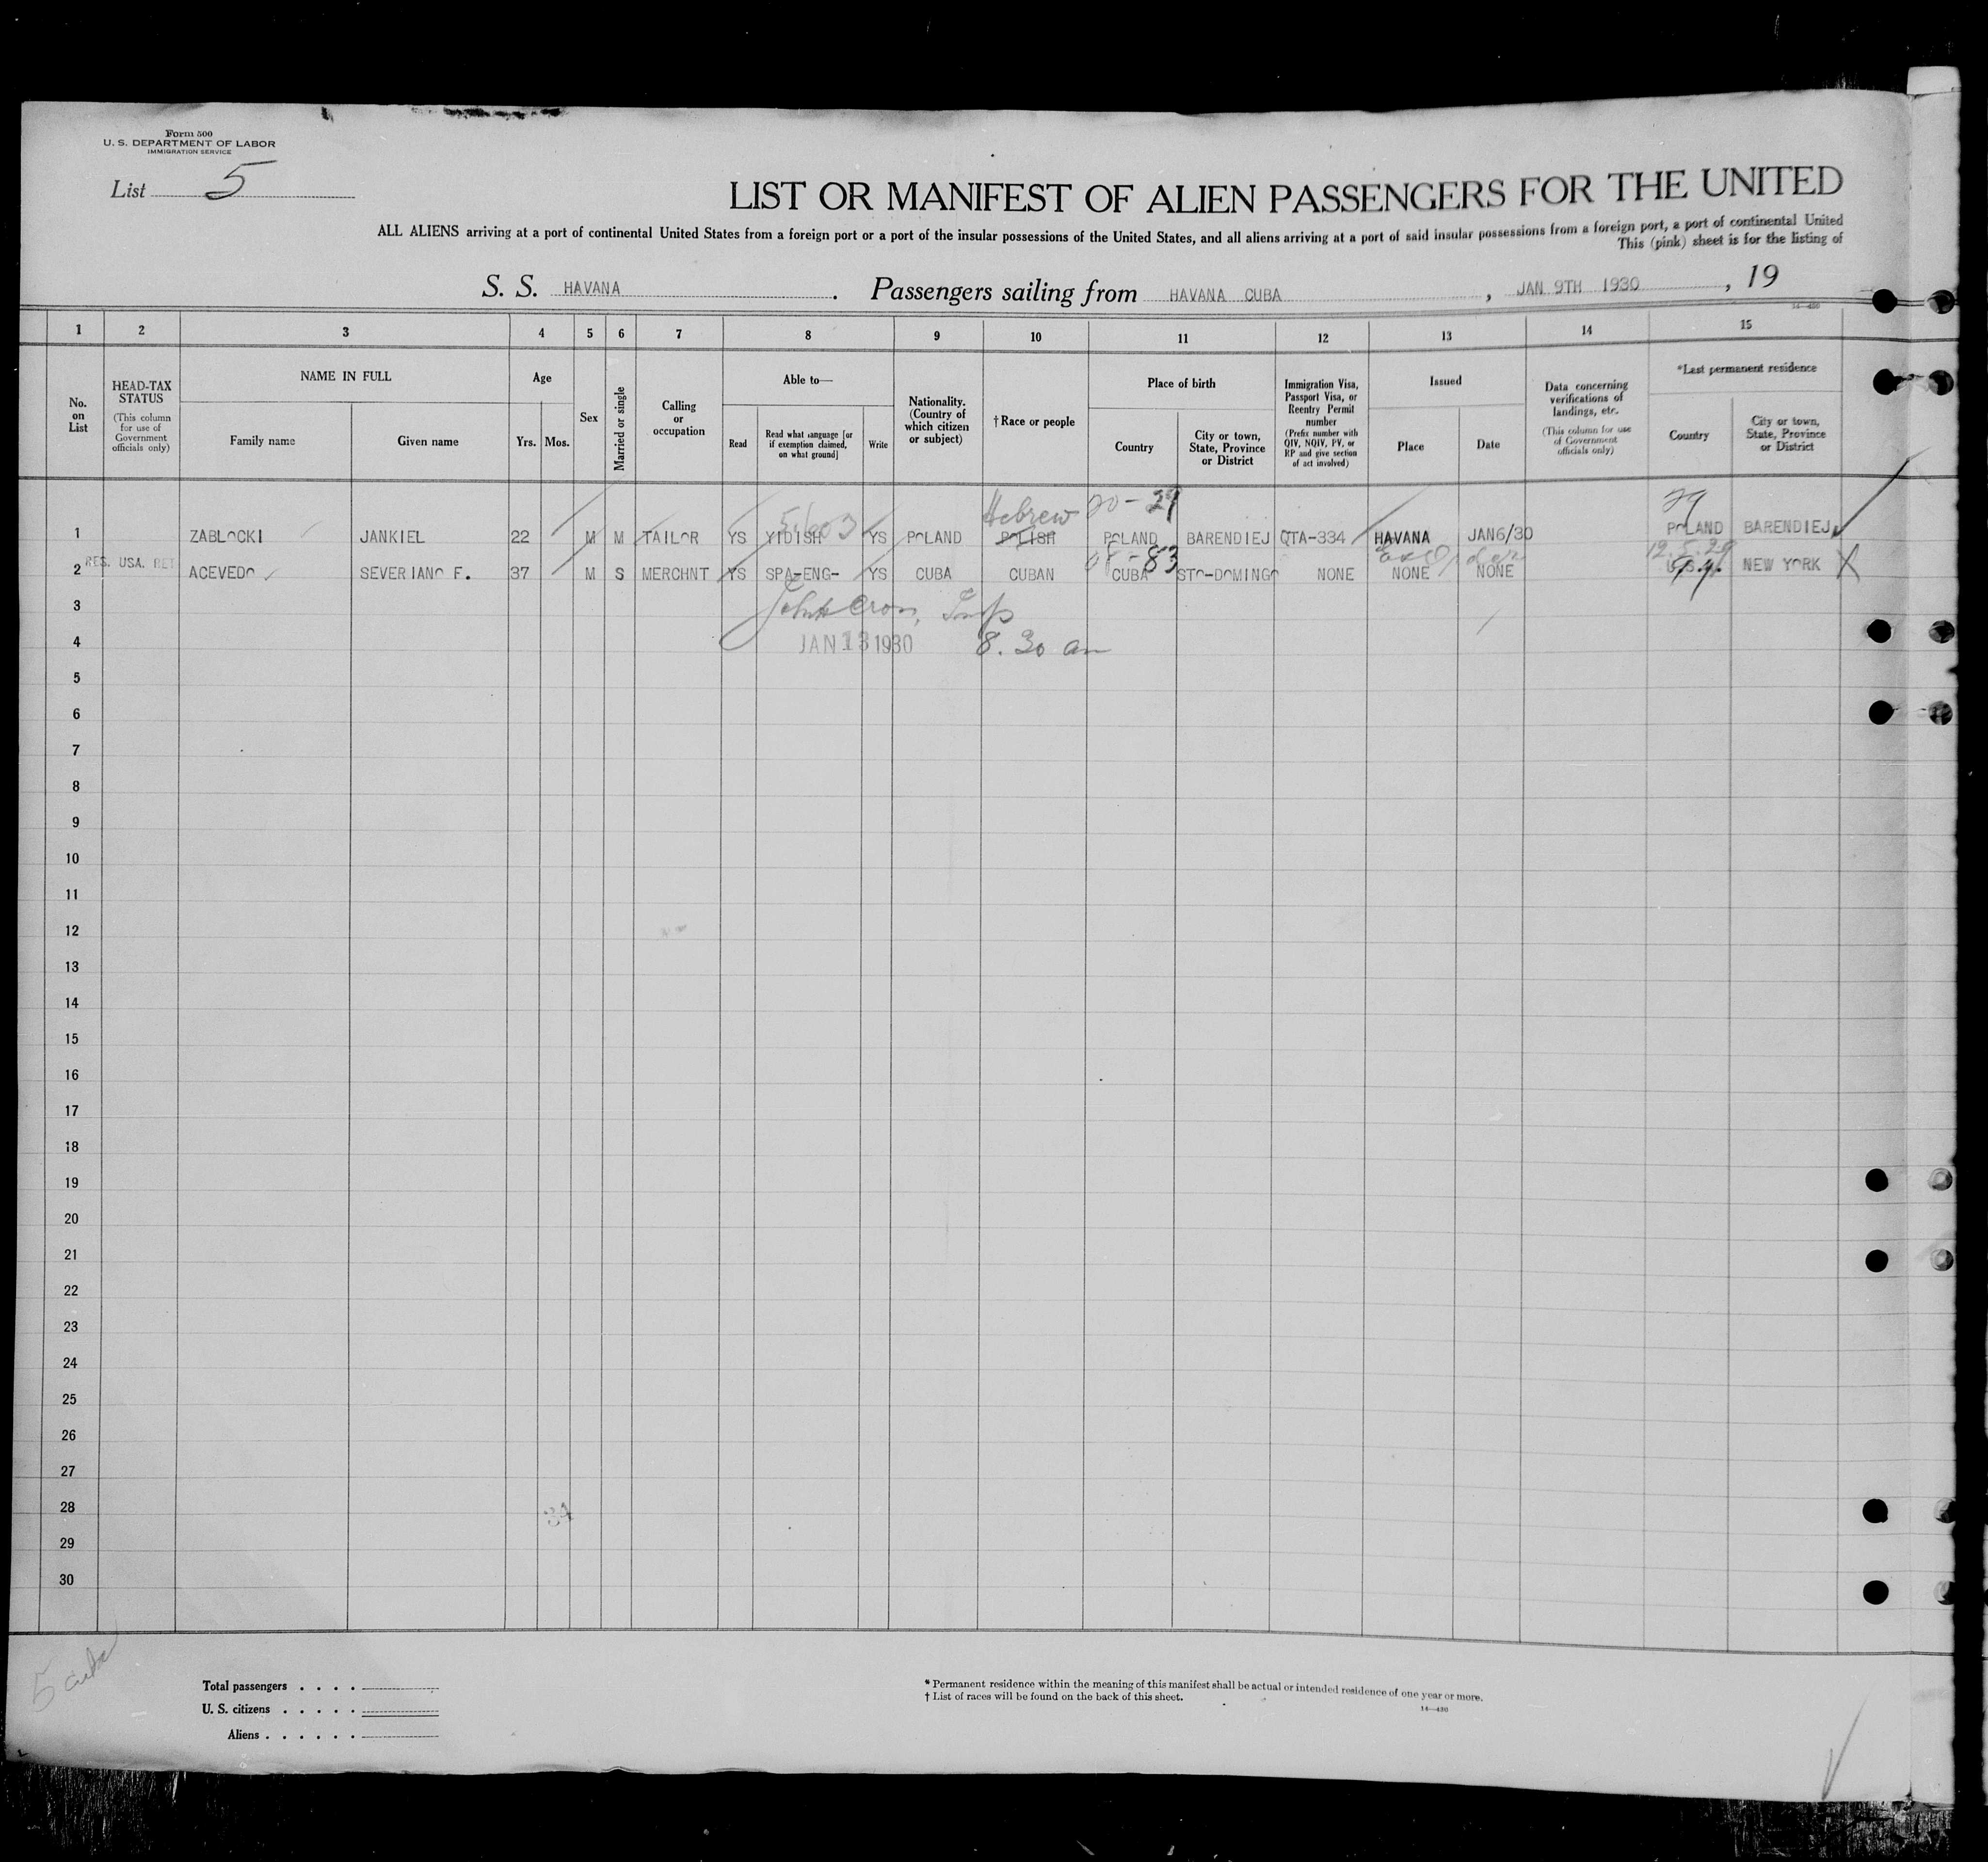 Form 500
U. S. DEPARTMENT OF LABOR
IMMIGRATION SERVICE
List 5
LIST OR MANIFEST OF ALIEN PASSENGERS FOR THE UNITED
ALL ALIENS arriving at a port of continental United States from a foreign port or a port of the insular possessions of the United States, and all aliens arriving at a port of said insular possessions from a foreign port, a port of continental United
This (pink) sheet is for the listing of
S. S. HAVANA. Passengers sailing from HAVANA CUBA, JAN 9TH 1930, 19
14—430
1 2 3 4 5 6 7 8 9 10 11 12 13 14 15
No. on List
HEAD-TAX STATUS (This column for use of Government officials only)
NAME IN FULL
Family name
Given name
Age
Yrs. Mos.
Sex
Married or single
Calling or occupation
Able to—
Read
Read what language [or if exemption claimed, on what ground]
Write
Nationality. (Country of which citizen or subject)
†Race or people
Place of birth
Country
City or town, State, Province or District
Immigration Visa, Passport Visa, or Reentry Permit number (Prefix number with QIV, NQIV, PV, or RP and give section of act involved)
Issued
Place
Date
Data concerning verifications of landings, etc. (This column for use of Government officials only)
*Last permanent residence
Country
City or town, State, Province or District
Hebrew 20-29 29
1 ZABLOCKI JANKIEL 22 M M TAILOR YS YIDISH YS POLAND POLISH POLAND BARENDIEJ QTA-334 HAVANA JAN6/30 POLAND BARENDIEJ
08-83 12.5.29
RES. USA. RET
2 ACEVEDO SEVERIANO F. 37 M S MERCHNT YS SPA-ENG- YS CUBA CUBAN CUBA STO-DOMINGO NONE NONE NONE NEW YORK X
3 Insp
4 JAN 13 1930 8.30 am
5
6
7
8
9
10
11
12
13
14
15
16
17
18
19
20
21
22
23
24
25
26
27
28
29
30
Total passengers . . . .
U. S. citizens . . . . .
Aliens . . . . . .
* Permanent residence within the meaning of this manifest shall be actual or intended residence of one year or more.
† List of races will be found on the back of this sheet.
14—430